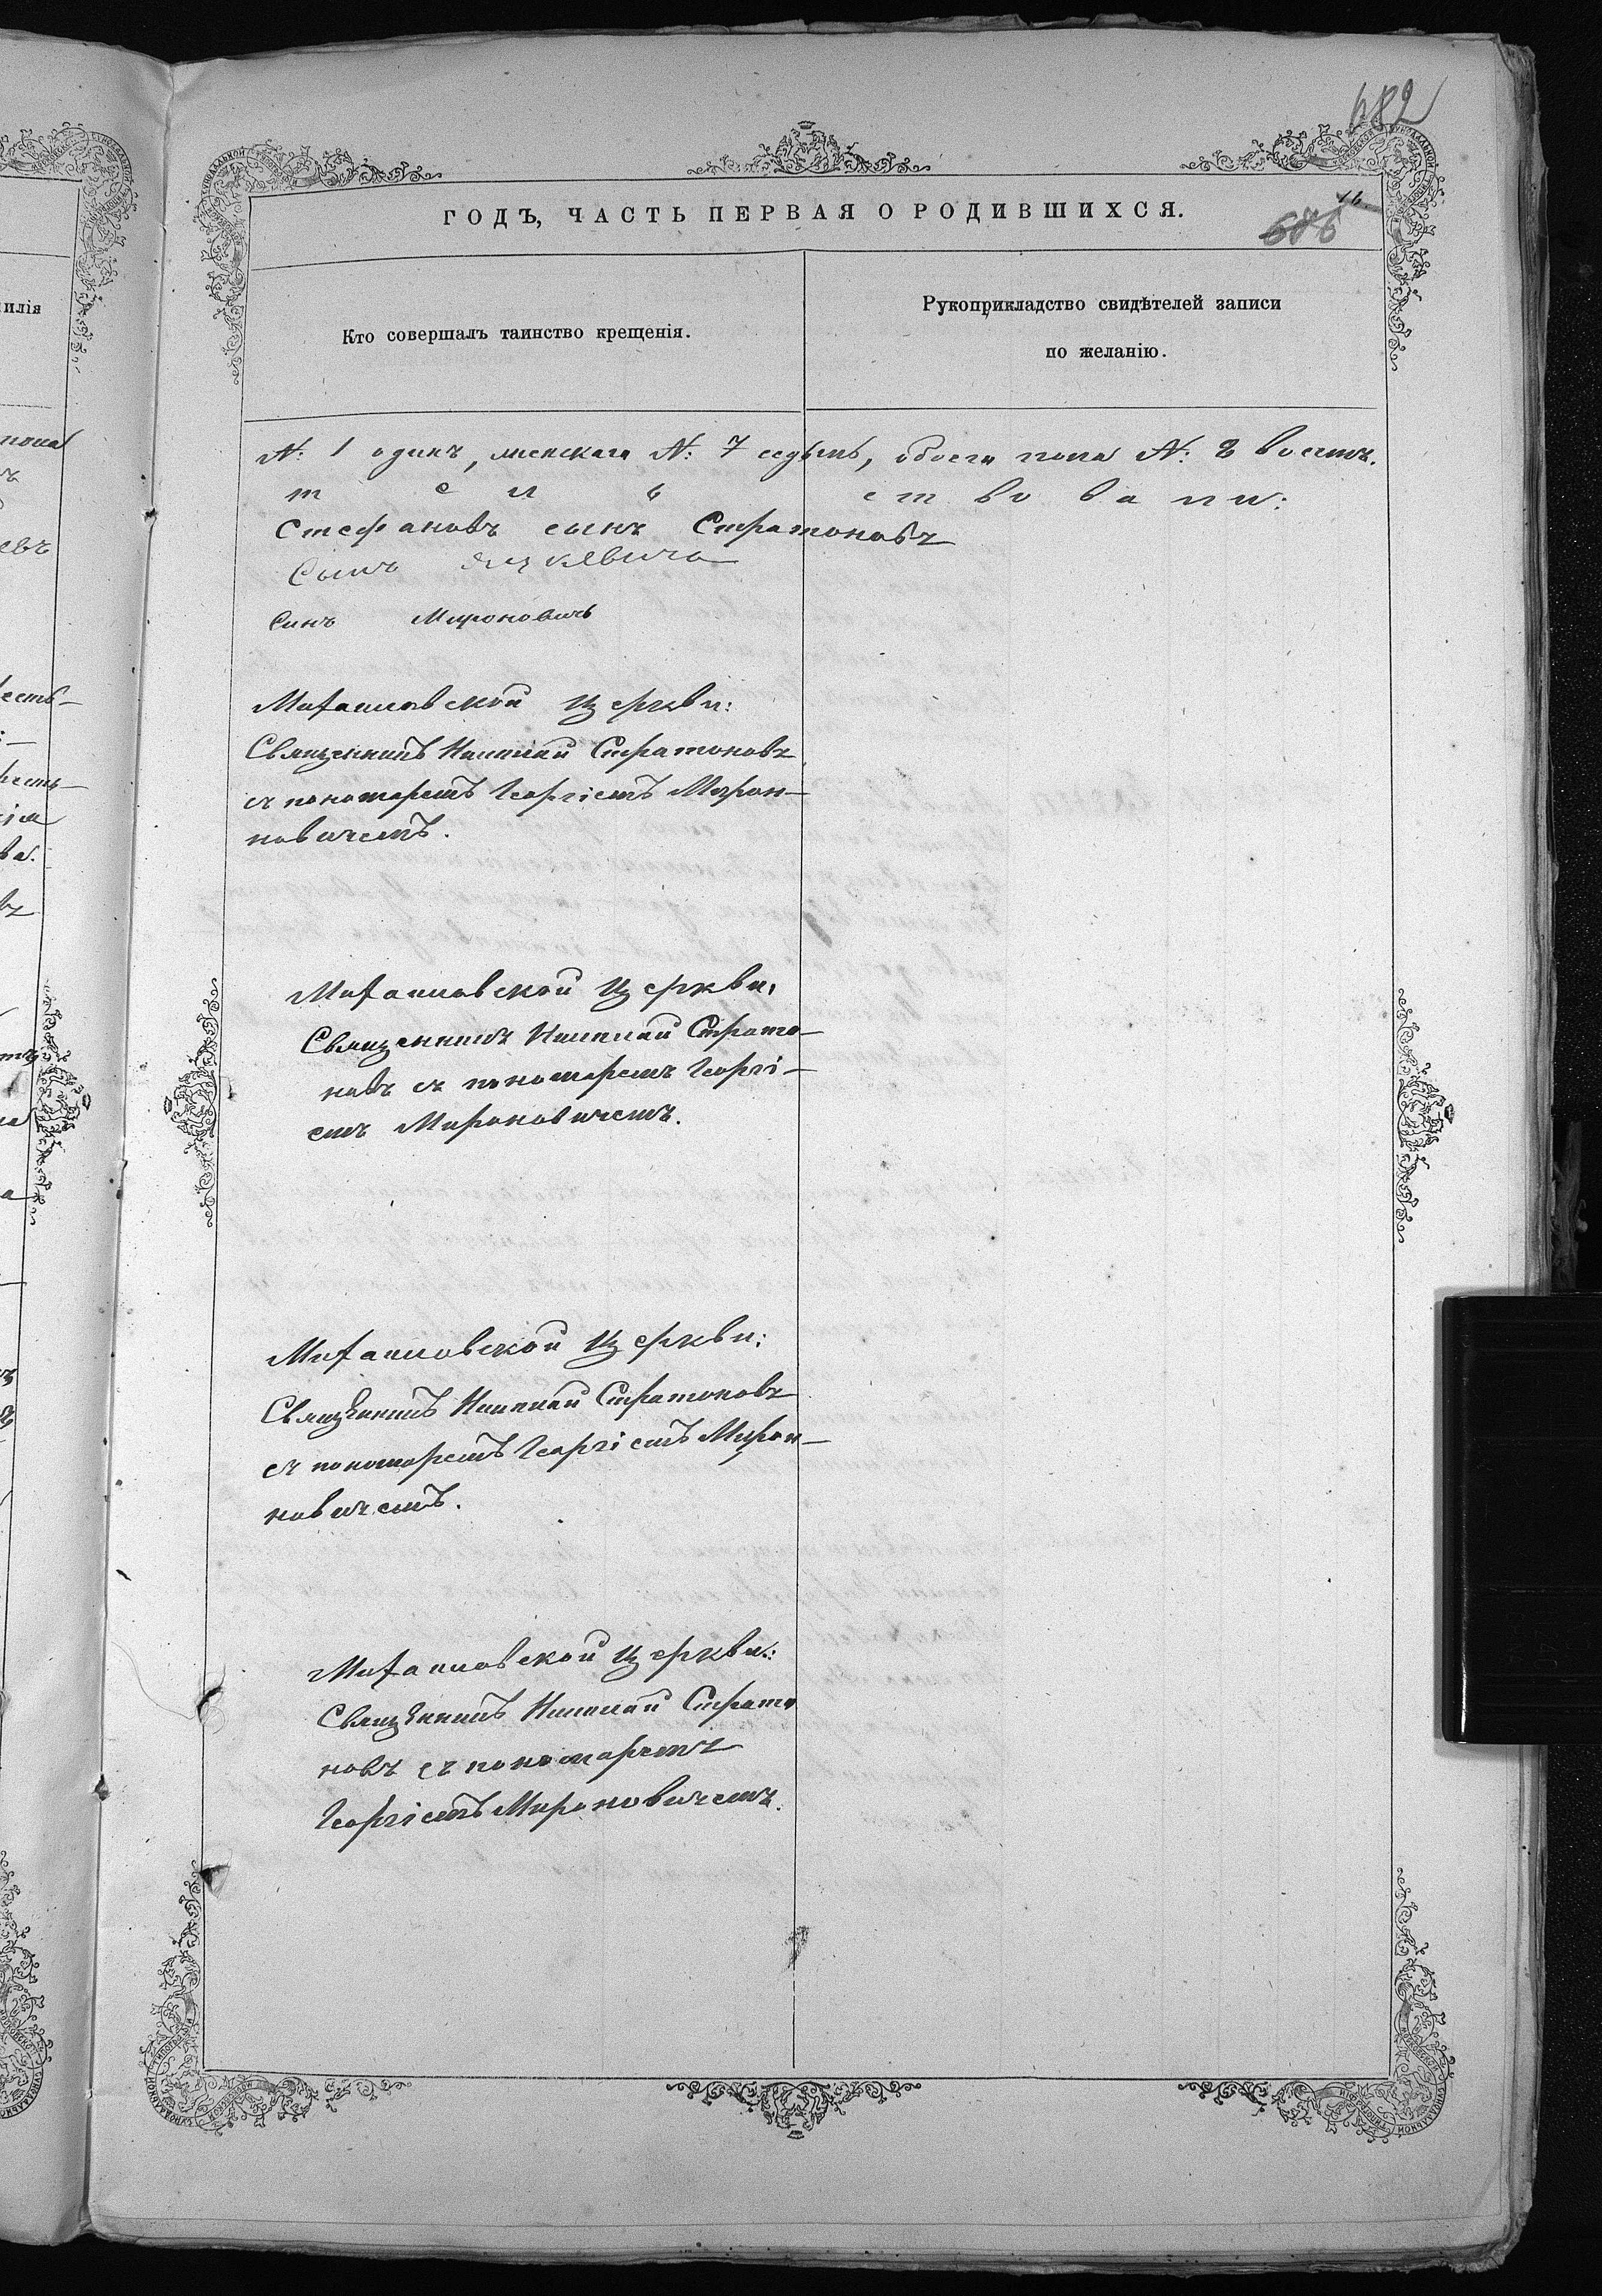 682
ГОДЪ, ЧАСТЬ ПЕРВАЯ О РОДИВШИХСЯ.
16
686
Кто совершалъ таинство крещенія.
Рукоприкладство свидѣтелей записи
по желанію.
№: 1 одинъ, женскаго №: 7 седьмь, обоего пола №: 8 восемь.
т е л ь с т в о в а л и:
Стефановъ сынъ Стратоновъ
Сынъ
Синъ Мироновичъ
Михаиловской церкви:
Священникъ Николай Стратоновъ
съ пономаремъ Георгіемъ Мирон-
новичемъ.
Михаиловской церкви,
Священникъ Николай Страто-
новъ съ пономаремъ Георгі-
емъ Мироновичемъ.
Михаиловской церкви:
Священникъ Николай Стратоновъ
съ пономаремъ Георгіемъ Мирон-
новичемъ.
Михаиловской церкви:
Священникъ Николай Страто
новъ съ пономаремъ
Георгіемъ Мироновичемъ.